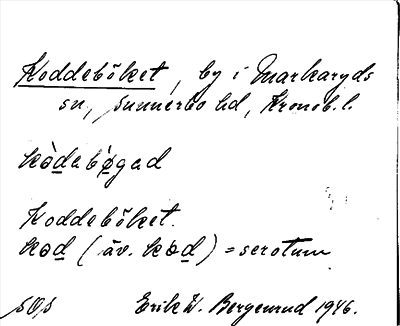 Koddebőket, by i Markaryds
sn, Sunnerbo hd, Kronob. l.
kòdabøgad
Koddebőket.
kod (äv. kòd) = scrotum
Erik W. Bergenrud 1946.